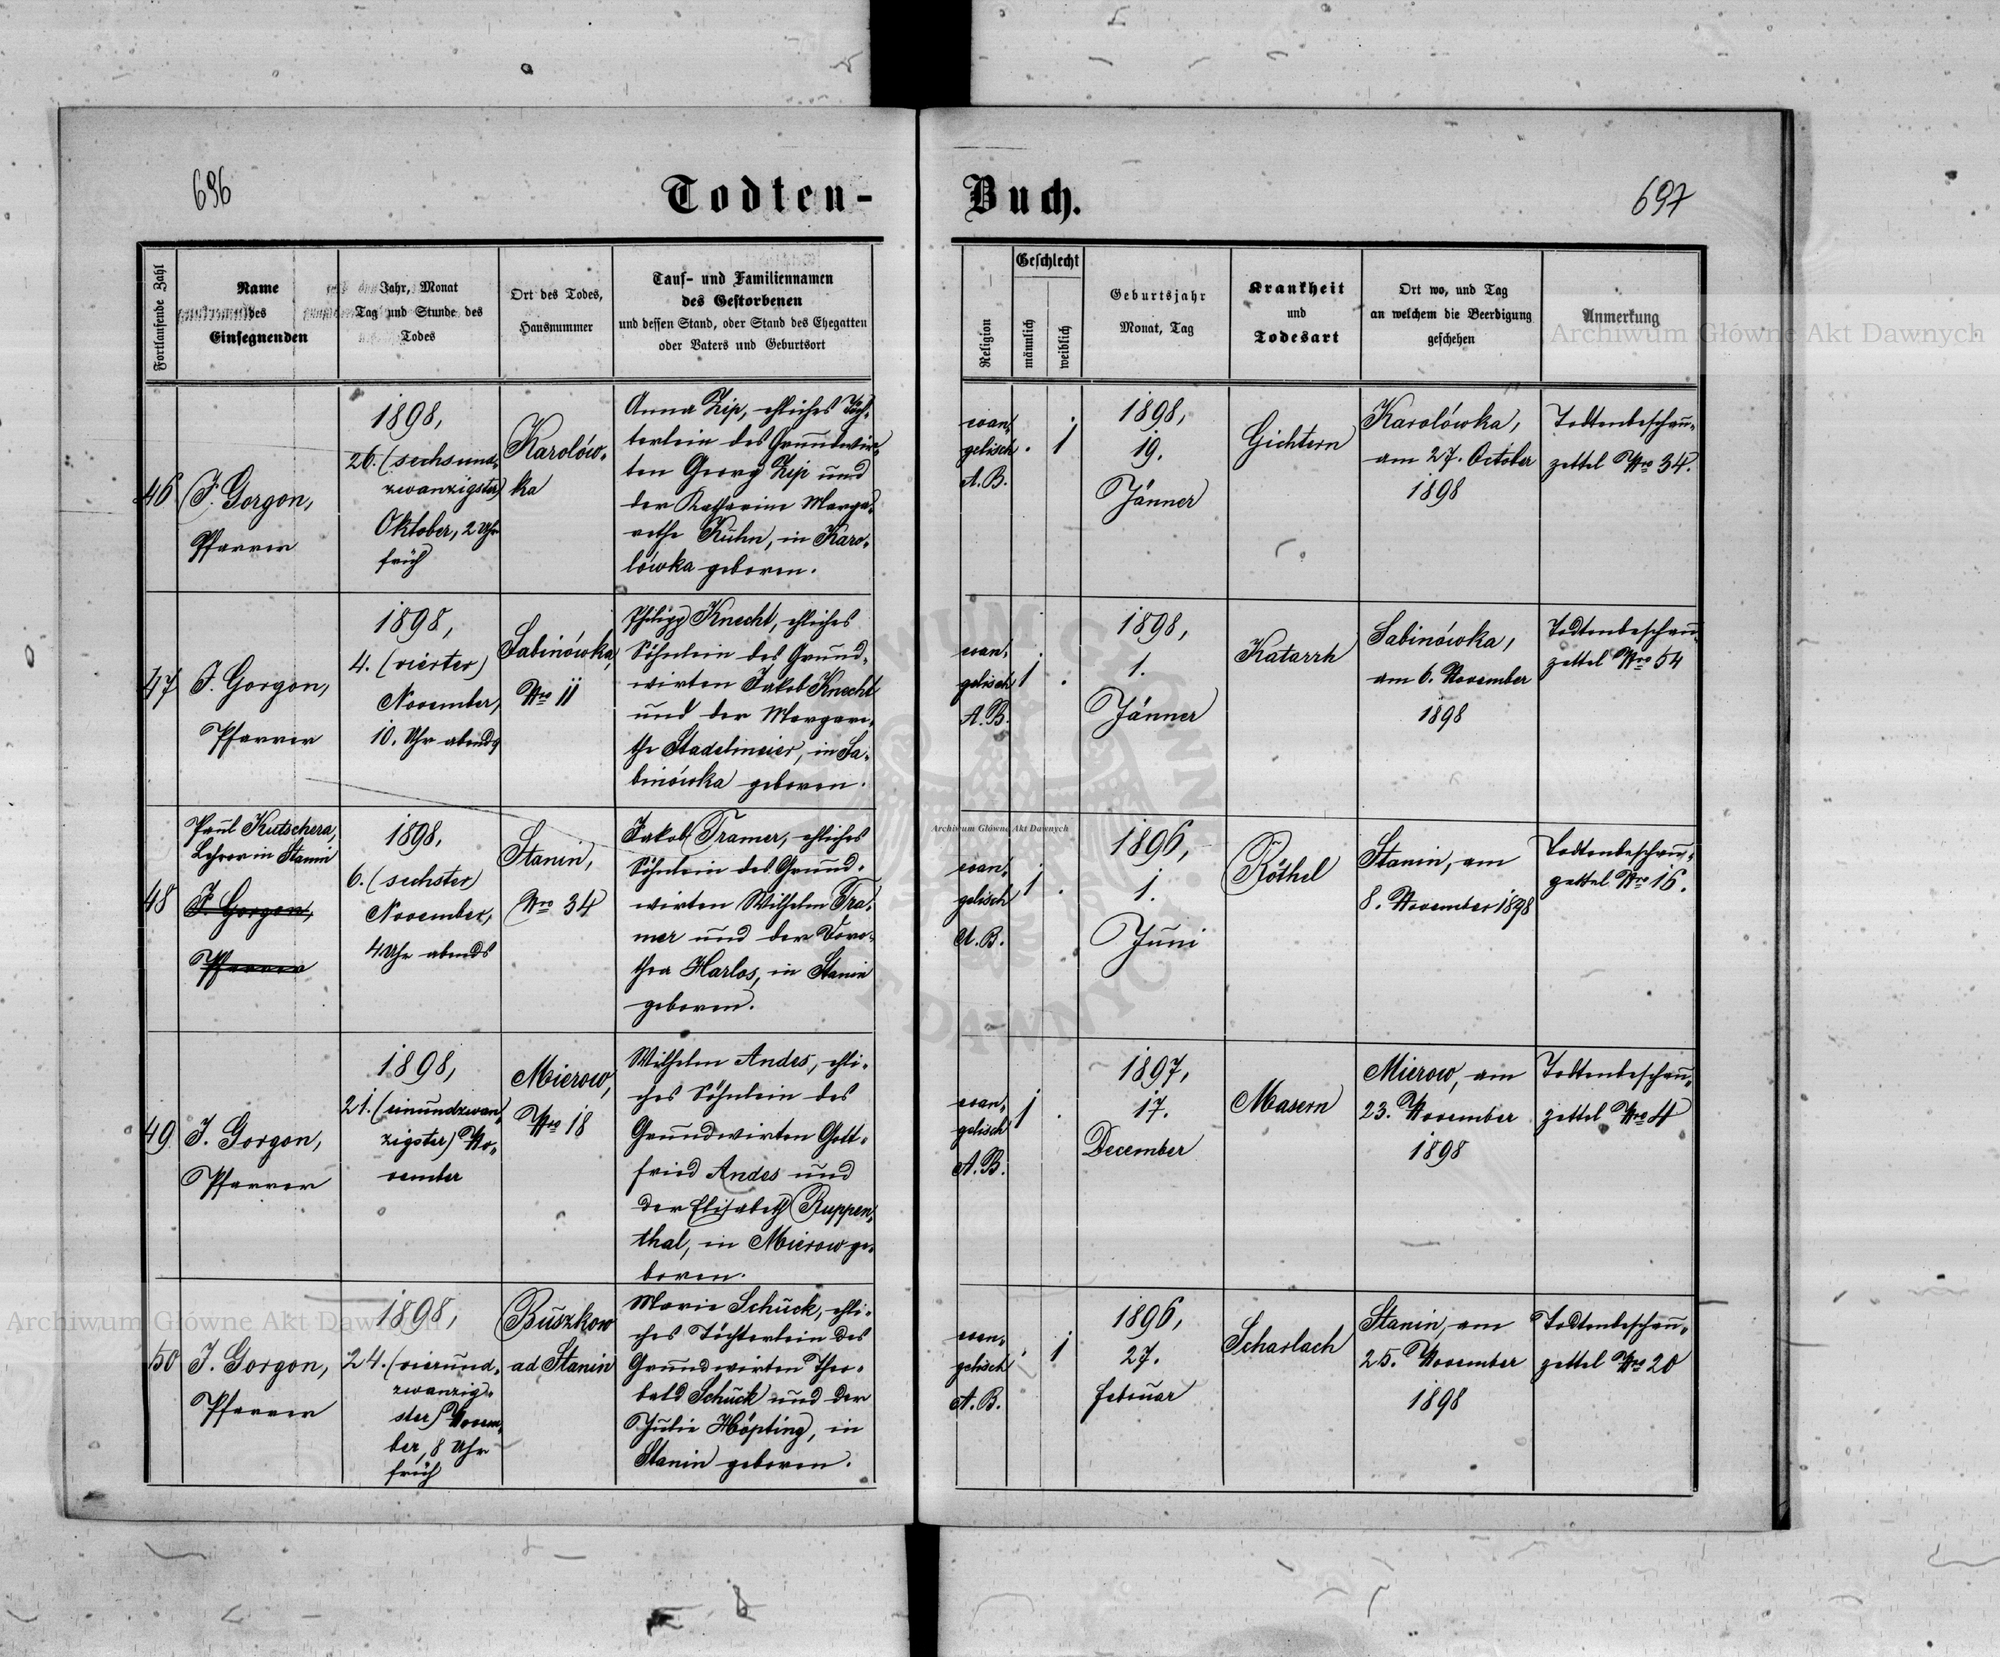 696
Todten-
Buch.
697
Fortlaufende Zahl
Name
des
Einsegnenden
Jahr, Monat
Tag und Stunde des
Todes
Ort des Todes,
Hausnummer
Tauf- und Familiennamen
des Gestorbenen
und dessen Stand, oder Stand des Ehegatten
oder Vaters und Geburtsort
Religion
Geschlecht
männlich
weiblich
Geburtsjahr
Monat, Tag
Krankheit
und
Todesart
Ort wo, und Tag
an welchem die Beerdigung
geschehen
Anmerkung
46
J. Gorgon,
Pfarrer
1898,
26. (sechsund-
zwanzigster)
Oktober, 2 Uhr
früh
Karolów-
ka
Anna Zip, ehliches Töch-
terlein des Grundwir-
ten Georg Zip und
der Katharine Marga-
rethe Kühn, in Karo-
lówka geboren.
evan-
gelisch
A. B.
. 1
1898,
19.
Jänner
Gichtern
Karolówka,
am 27. October
1898
Todtenbeschau-
zettel Nro 34.
47
J. Gorgon,
Pfarrer
1898,
4. (vierter)
November,
10. Uhr abends
Sabinówka,
Nro 11
Philipp Knecht, ehliches
Söhnlein des Grund-
wirten Jakob Knecht
und der Margare-
the Stadelmeier, in Sa-
binówka geboren.
evan-
gelisch
A. B.
1 .
1898,
1.
Jänner
Katarrh
Sabinówka,
am 6. November
1898
Todtenbeschau-
zettel Nro 54
48
Paul Kutschera,
Lehrer in Stanin
J. Gorgon,
Pfarrer
1898,
6. (sechster)
November,
4 Uhr abends
Stanin,
Nro 34
Jakob Tramer, ehliches
Söhnlein des Grund-
wirten Wilhelm Tra-
mer und der Doro-
thea Harlos, in Stanin
geboren.
evan-
gelisch
A. B.
1 .
1896,
1.
Juni
Röthel
Stanin, am
8. November 1898
Todtenbeschau-
zettel Nro 16.
49
J. Gorgon,
Pfarrer
1898,
21. (einundzwan-
zigster) No-
vember
Mierow,
Nro 18
Wilhelm Andes, ehli-
ches Söhnlein des
Grundwirten Gott-
fried Andes und
der Elisabeth Ruppen-
thal, in Mierow ge-
boren.
evan-
gelisch
A. B.
1 .
1897,
17.
December
Masern
Mierow, am
23. November
1898
Todtenbeschau-
zettel Nro 4
50
J. Gorgon,
Pfarrer
1898,
24. (vierund-
zwanzig-
ster) Novem-
ber, 8 Uhr
früh
Buszkow
ad Stanin
Marie Schuck, ehli-
ches Töchterlein des
Grundwirten Theo-
bald Schuck und der
Julie Höpting, in
Stanin geboren.
evan-
gelisch
A. B.
. 1
1896,
27.
Februar
Scharlach
Stanin, am
25. November
1898
Todtenbeschau-
zettel Nro 20
Archiwum Główne Akt Dawnych
Archiwum Główne Akt Dawnych
Archiwum Główne Akt Dawnych